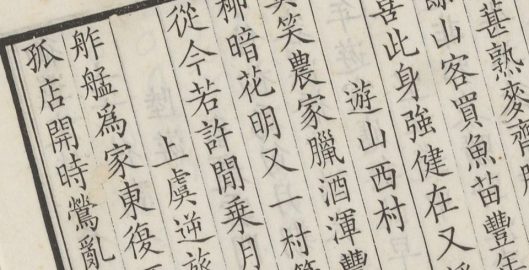 甚熟麥齊
山客買魚苗豐年
喜此身強健在又
遊山西村
莫笑農家臘酒渾豐
柳暗花明又一村簫
從今若許閒乘月
上虞逆旅
舴艋爲家東復西
孤店開時鶯亂